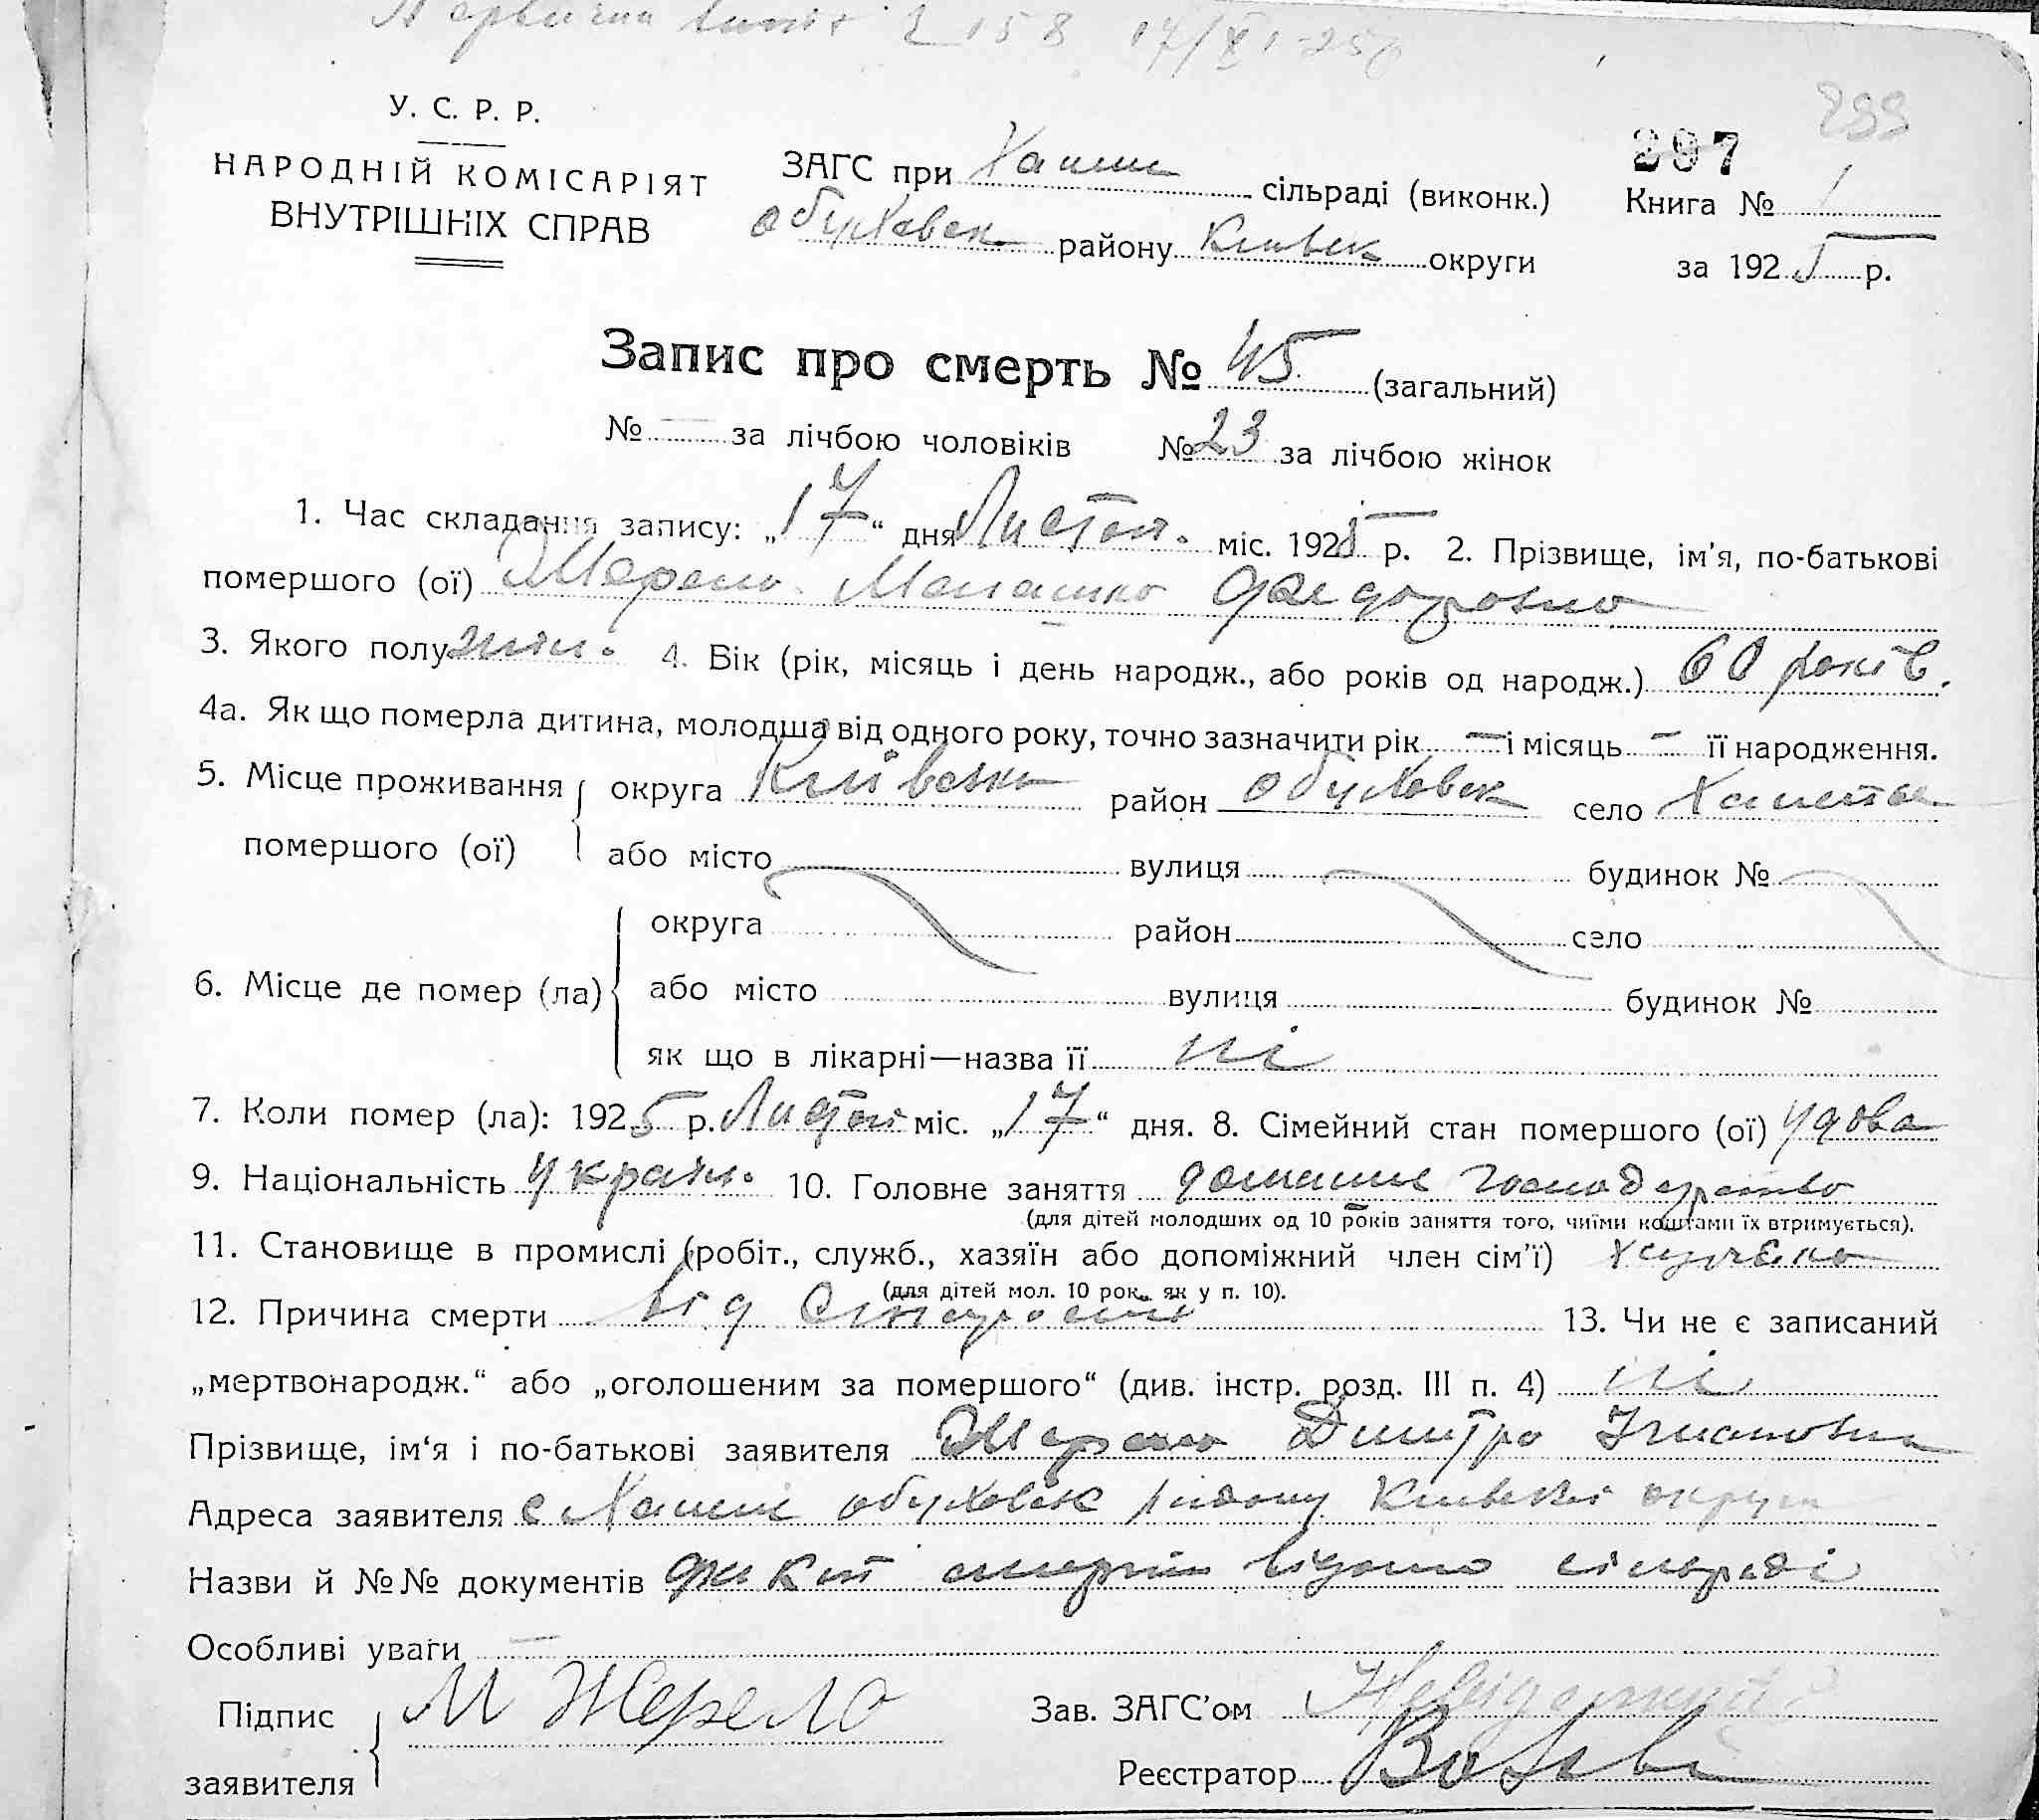 158 17/XI-25р
У. С. Р. Р.
НАРОДНІЙ КОМІСАРІЯТ
ВНУТРІШНІХ СПРАВ
ЗАГС при сільраді (виконк.)
Обухівськ району Київськ округи
297
Книга № 1
за 1925 р.
Запис про смерть № 45 (загальний)
№ — за лічбою чоловіків № 23 за лічбою жінок
1. Час складання запису: „17“ дня Листоп. міс. 1925 р. 2. Прізвище, ім’я, по-батькові
помершого (ої) Жерело Малашка Федоровна
3. Якого полу жін. 4. Вік (рік, місяць і день народж., або років од народж.) 60 років.
4а. Як що померла дитина, молодша від одного року, точно зазначити рік — і місяць — її народження.
5. Місце проживання округа Київська район Обухівськ село
помершого (ої) або місто вулиця будинок №
округа район село
6. Місце де помер (ла) або місто вулиця будинок №
як що в лікарні—назва її ні
7. Коли помер (ла): 1925 р. Листоп міс. „17“ дня. 8. Сімейний стан помершого (ої) удова
9. Національність україн. 10. Головне заняття домашнє господарство
(для дітей молодших од 10 років заняття того, чиїми коштами їх втримується).
11. Становище в промислі (робіт., служб., хазяїн або допоміжний член сім’ї)
(для дітей мол. 10 рок. як у п. 10).
12. Причина смерти від старости 13. Чи не є записаний
„мертвонародж.“ або „оголошеним за помершого“ (див. інстр. розд. III п. 4) ні
Прізвище, ім‘я і по-батькові заявителя Жерело Дмитро
Адреса заявителя с обухівськ району Київської округи
Назви й №№ документів факт смерти відомо сільраді
Особливі уваги —
Підпис
заявителя
М Жерело
Зав. ЗАГС’ом
Реєстратор